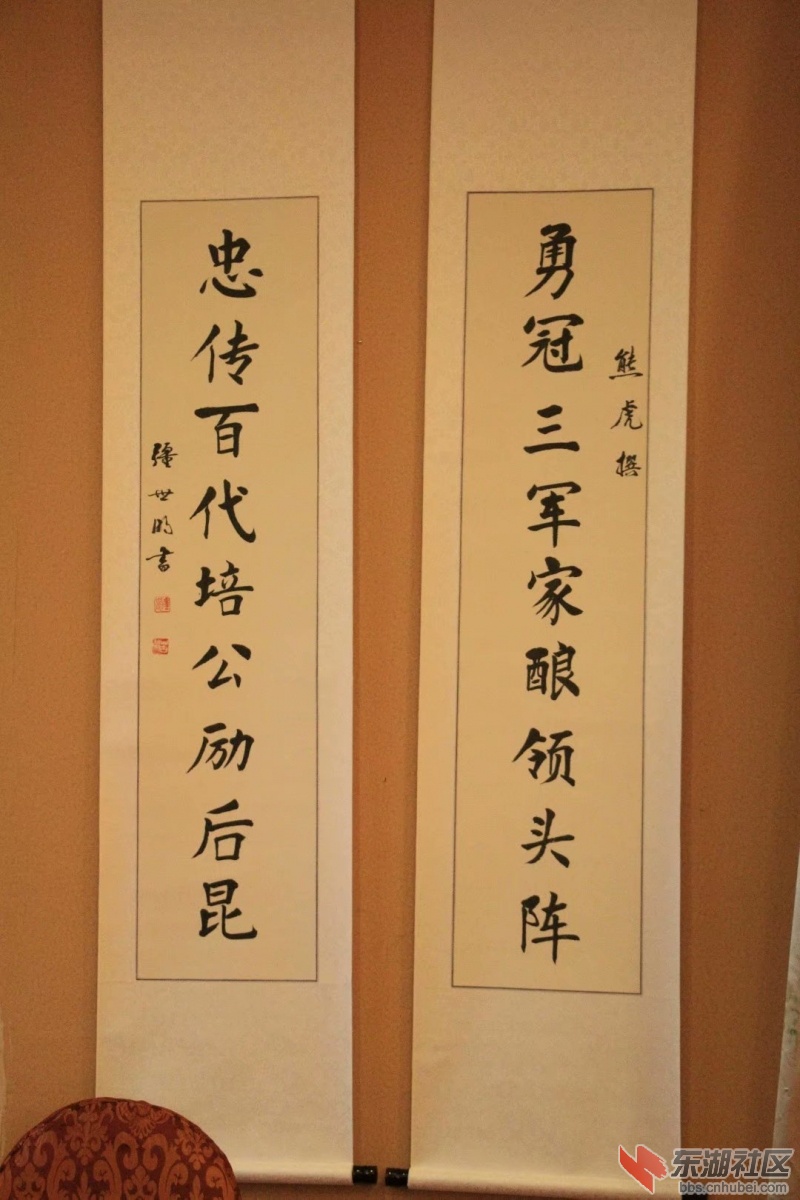 勇冠三军家酿领头阵
熊虎撰
忠传百代培公励后昆
张世明书
东湖社区
bbs.cnhubei.com